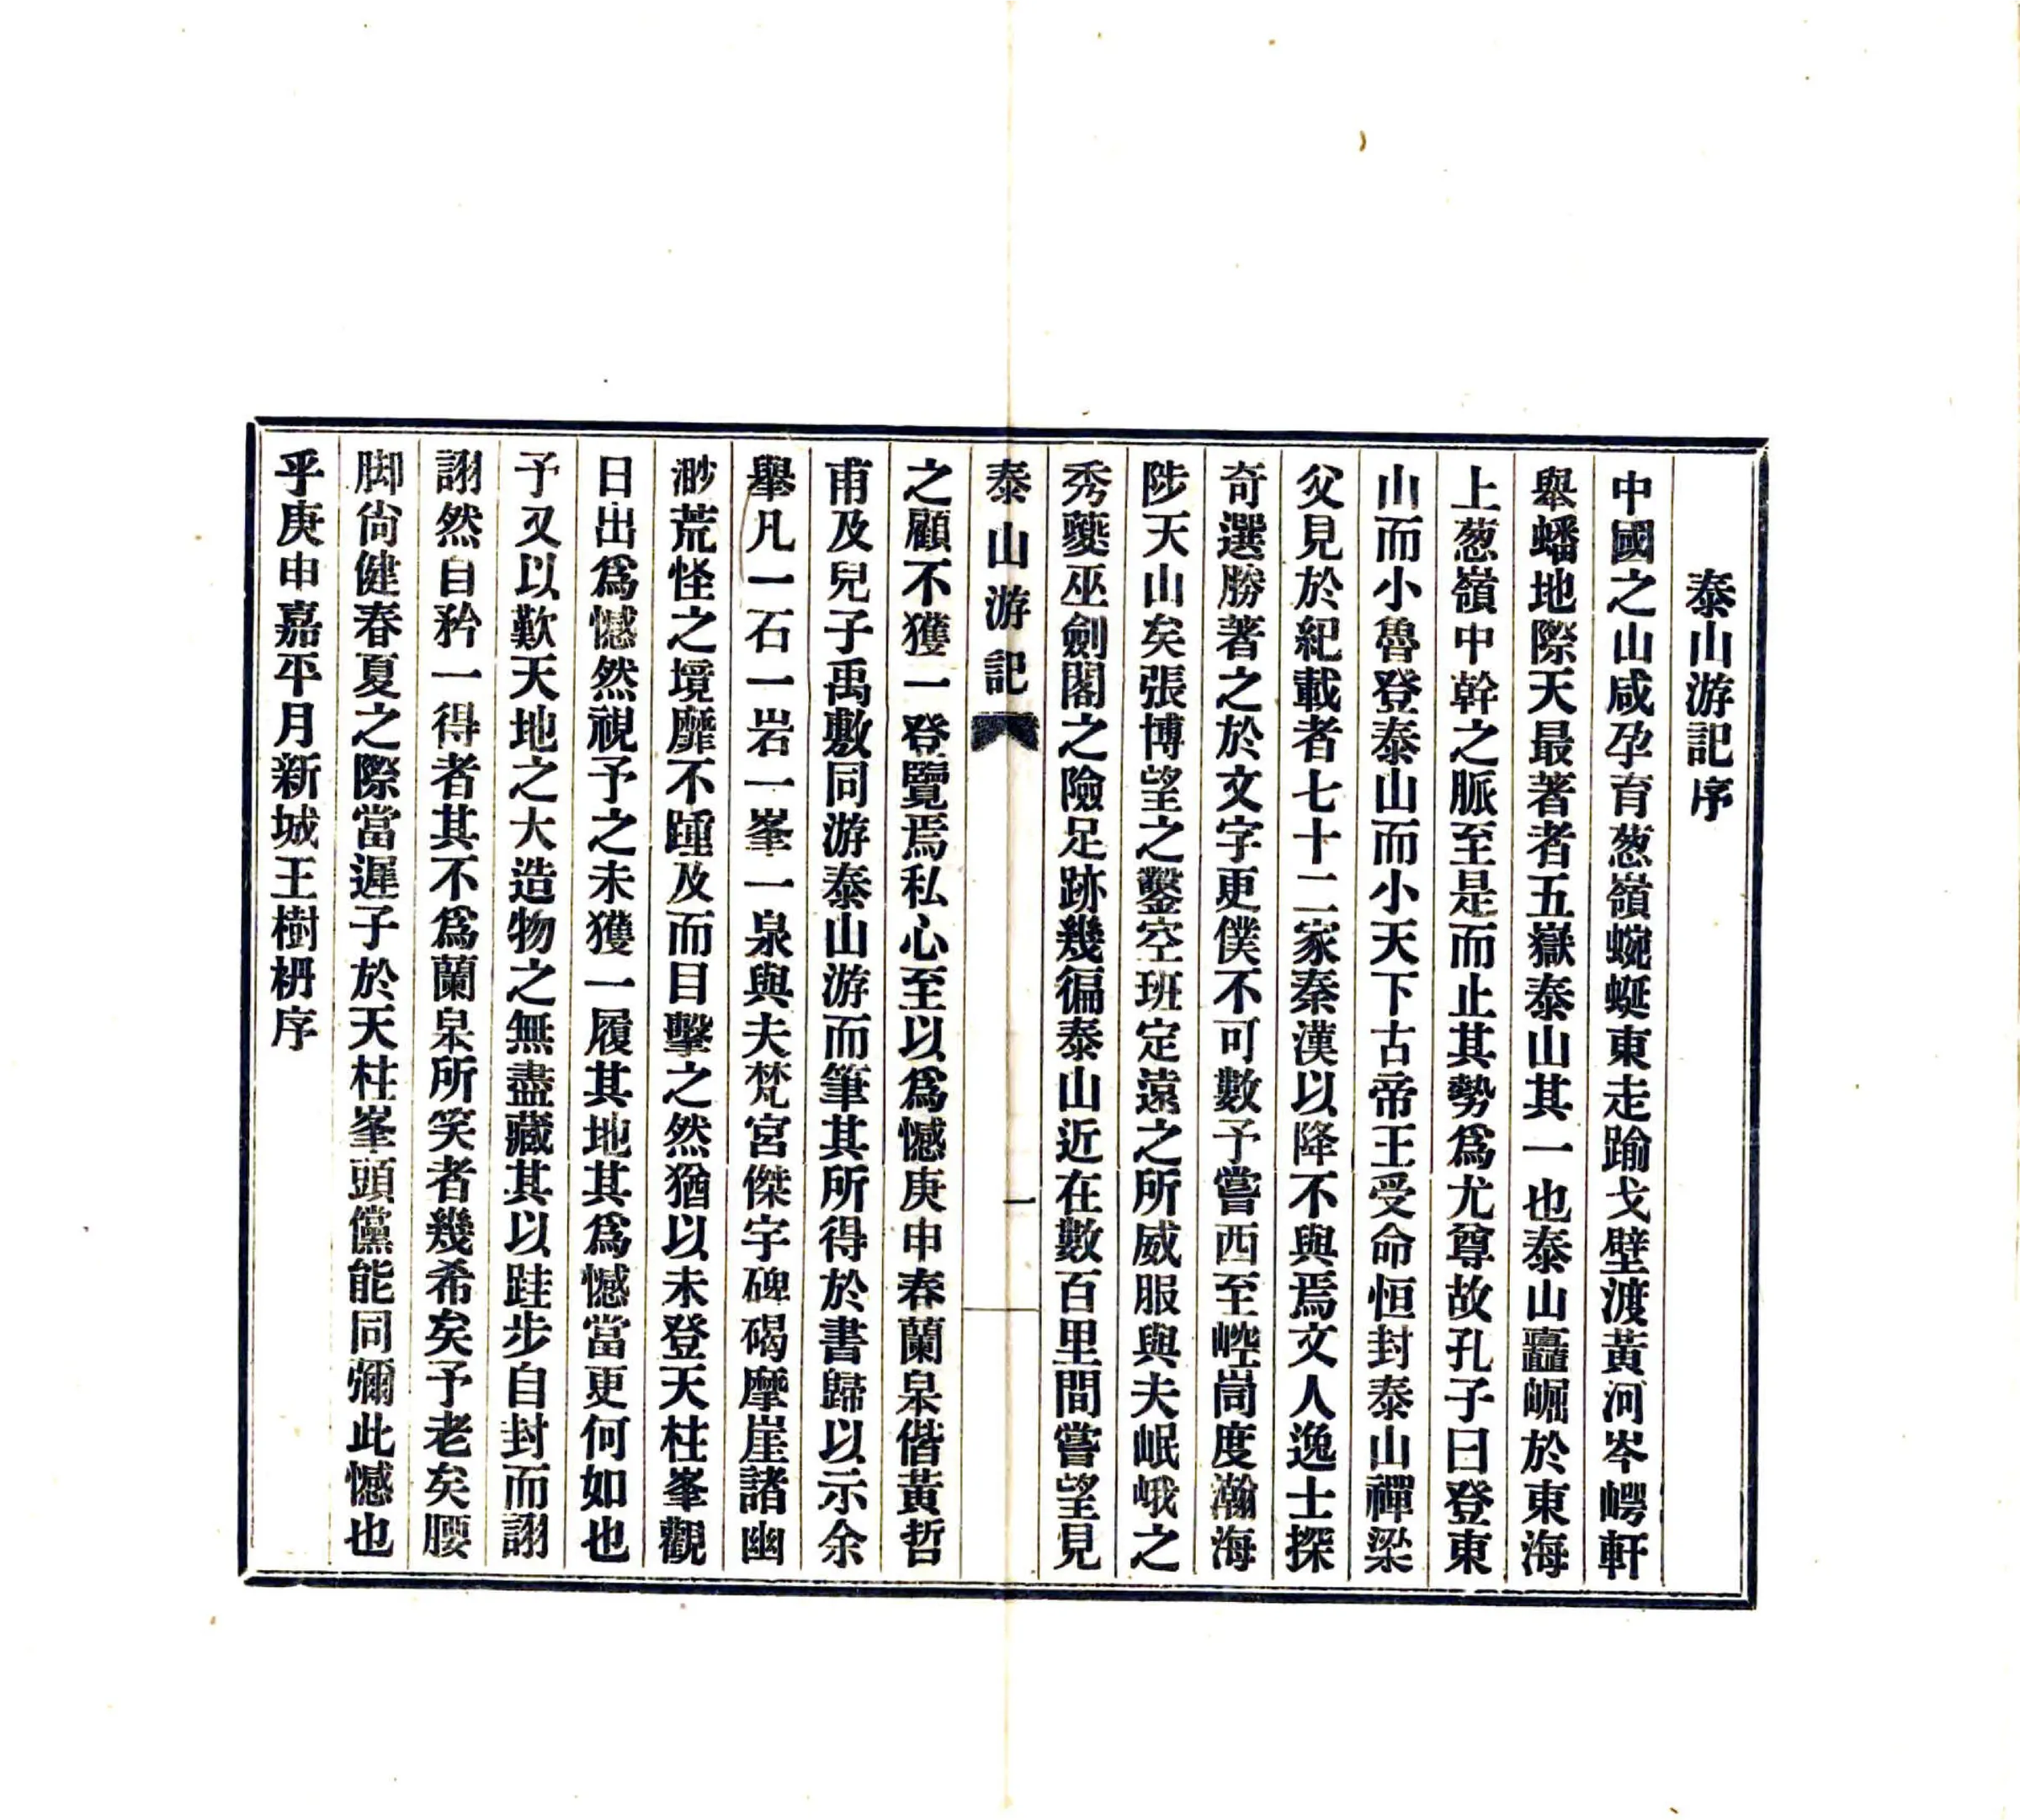 泰山游記序
中國之山咸孕育葱嶺蜿蜒東走踰戈壁渡黃河岑崿軒
舉蟠地際天最著者五嶽泰山其一也泰山矗崛於東海
上葱嶺中幹之脈至是而止其勢爲尤尊故孔子曰登東
山而小魯登泰山而小天下古帝王受命恒封泰山禪梁
父見於紀載者七十二家秦漢以降不與焉文人逸士探
奇選勝著之於文字更僕不可數予嘗西至崆峒度瀚海
陟天山矣張博望之鑿空班定遠之所威服與夫岷峨之
秀夔巫劍閣之險足跡幾徧泰山近在數百里間嘗望見
泰山游記 一
之顧不獲一登覽焉私心至以爲憾庚申春蘭皋偕黃哲
甫及兒子禹敷同游泰山游而筆其所得於書歸以示余
舉凡一石一岩一峯一泉與夫梵宮傑宇碑碣摩崖諸幽
渺荒怪之境靡不踵及而目擊之然猶以未登天柱峯觀
日出爲憾然視予之未獲一履其地其爲憾當更何如也
予又以歎天地之大造物之無盡藏其以跬步自封而詡
詡然自矜一得者其不爲蘭皋所笑者幾希矣予老矣腰
脚尙健春夏之際當遲子於天柱峯頭儻能同彌此憾也
乎庚申嘉平月新城王樹枏序